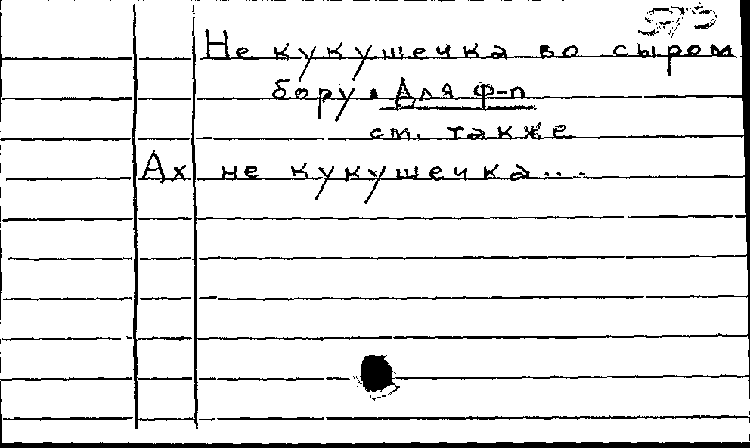 Не кукушечка во сыром
бору. Для ф-п
см. также
Ах не кукушечка...